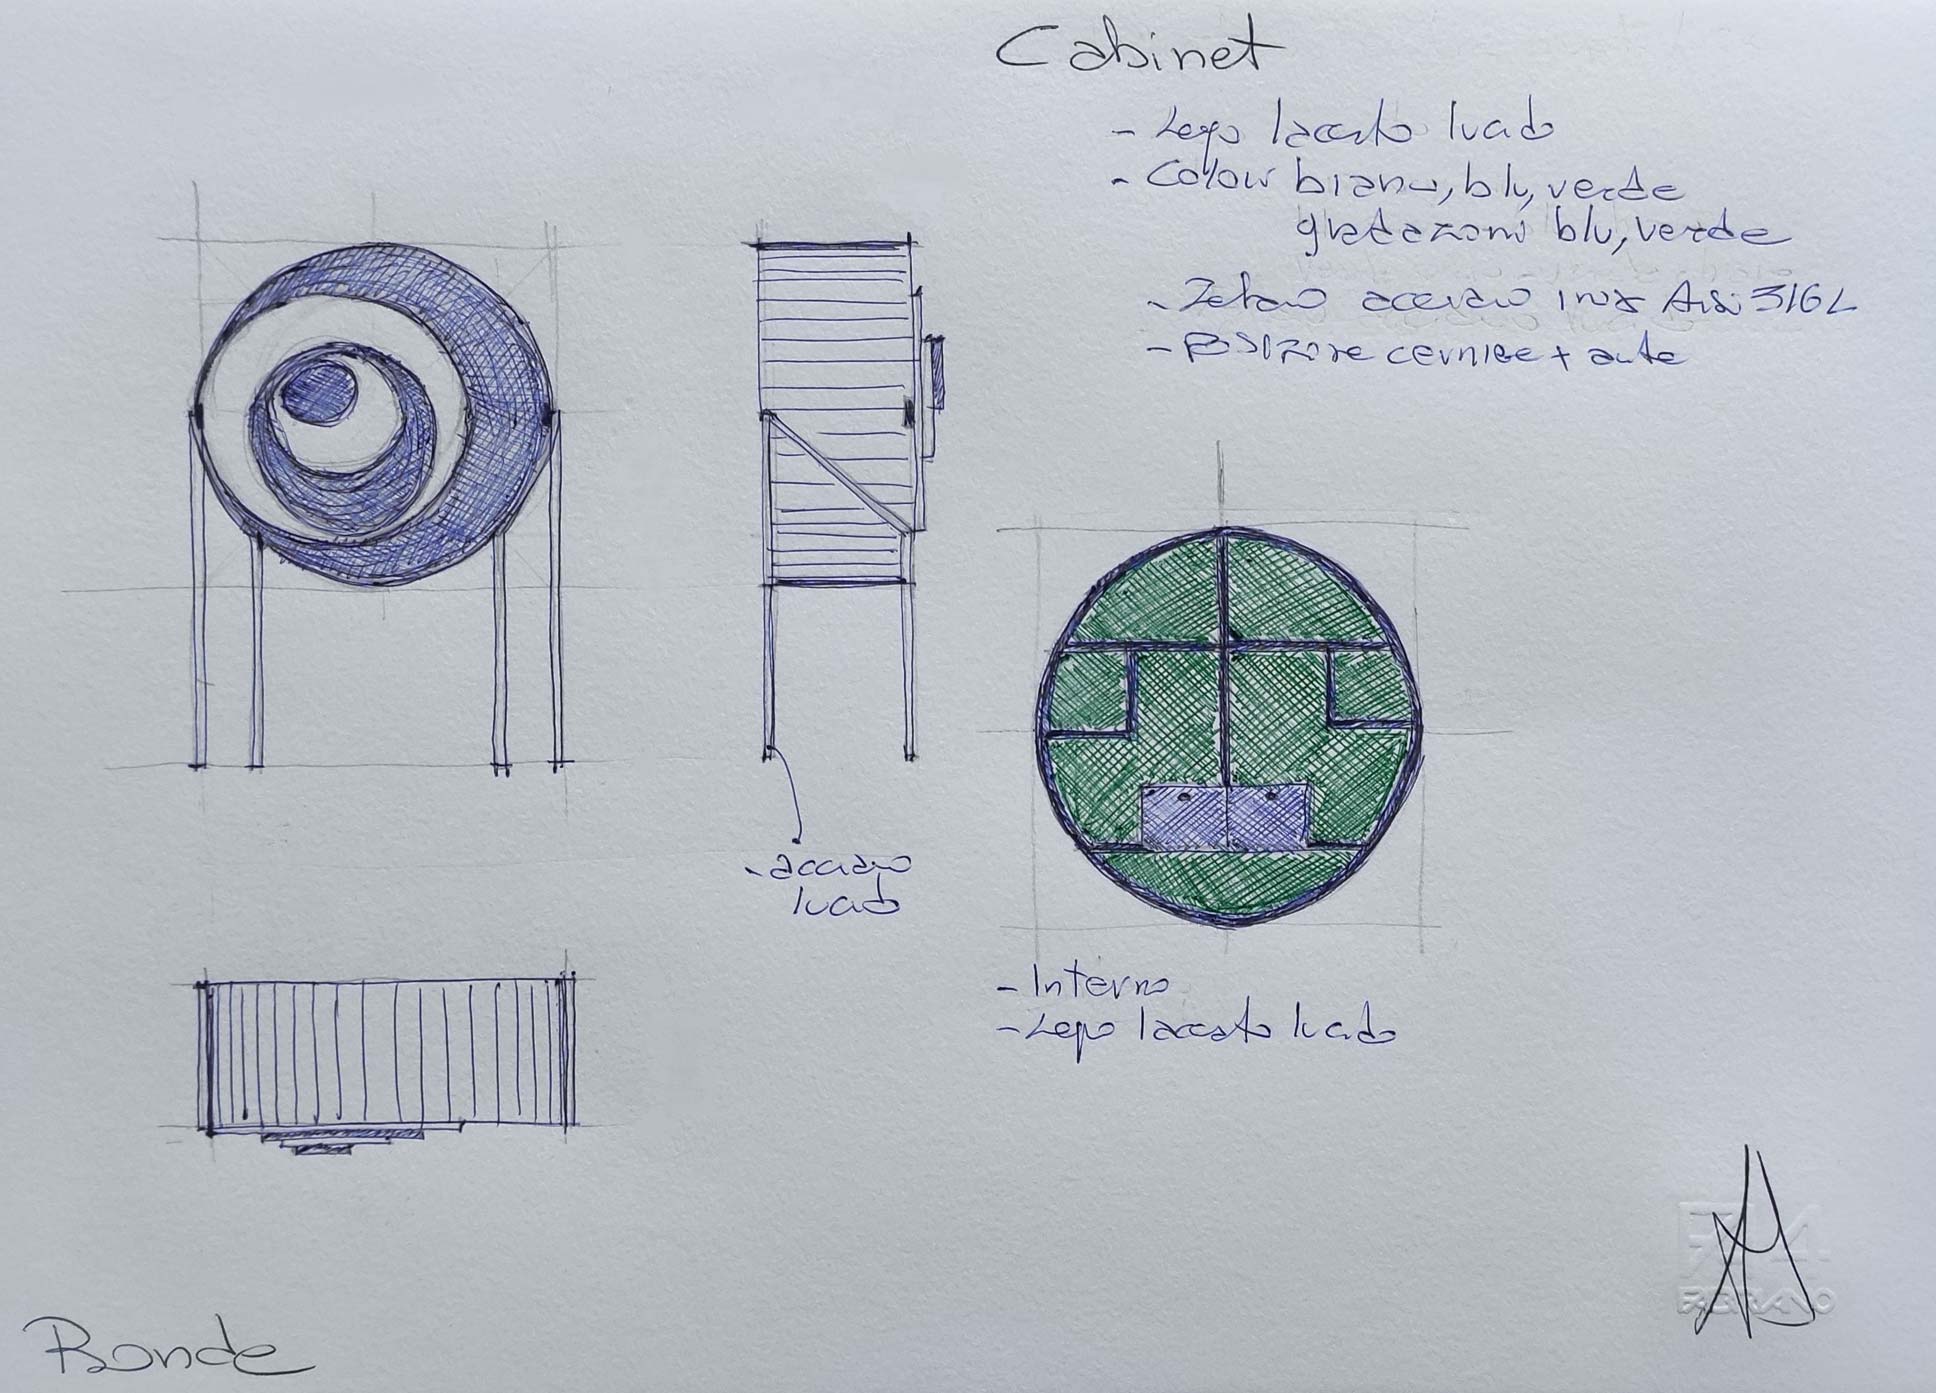 Cabinet
- Legno laccato lucido
- Colour bianco, blu, verde
gradazioni blu, verde
- Telaio acciaio inox Aisi 316L
- Posizione cerniere + ante
- acciaio
lucido
- Interno
- Legno laccato lucido
Ronde
F4
FABRIANO